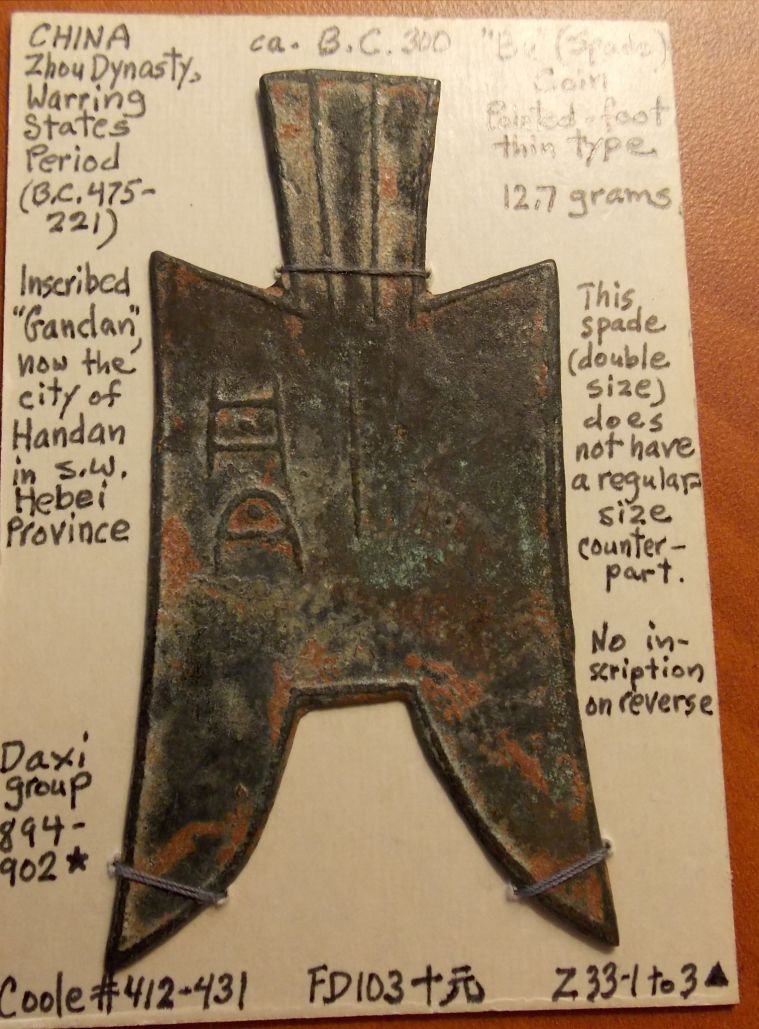 CHINA
Zhou Dynasty,
Warring
States
Period
(B.C. 475-
221)
ca. B.C. 300
"Bu" (Spade)
Coin
Pointed-foot
thin type
12.7 grams
Inscribed
"Gandan",
now the
city of
Handan
in S.W.
Hebei
Province
This
spade
(double
size)
does
not have
a regular-
size
counter-
part.
No in-
scription
on reverse
Daxi
group
894-
902*
Coole #412-431
FD103 十元
Z 33-1 to 3▲